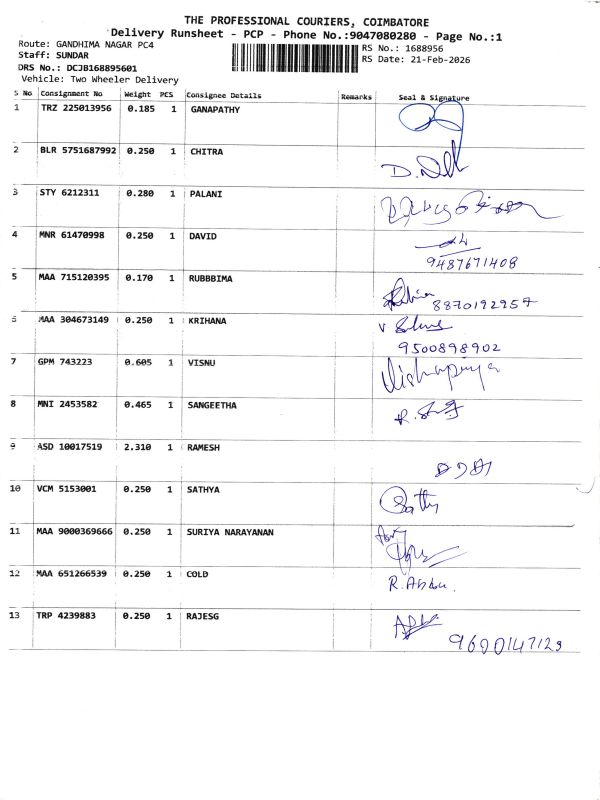 THE PROFESSIONAL COURIERS, COIMBATORE
Delivery Runsheet - PCP - Phone No.:9047080280 - Page No.:1
Route: GANDHIMA NAGAR PC4
RS No.: 1688956
Staff: SUNDAR
RS Date: 21-Feb-2026
DRS No.: DCJB168895601
Vehicle: Two Wheeler Delivery
S No Consignment No Weight PCS Consignee Details Remarks Seal & Signature
1 TRZ 225013956 0.185 1 GANAPATHY
2 BLR 5751687992 0.250 1 CHITRA
3 STY 6212311 0.280 1 PALANI
4 MNR 61470998 0.250 1 DAVID
9487671408
5 MAA 715120395 0.170 1 RUBBBIMA
8870192957
6 MAA 304673149 0.250 1 KRIHANA
9500898902
7 GPM 743223 0.605 1 VISNU
Vishnupriya
8 MNI 2453582 0.465 1 SANGEETHA
9 ASD 10017519 2.310 1 RAMESH
10 VCM 5153001 0.250 1 SATHYA
Sathy
11 MAA 9000369666 0.250 1 SURIYA NARAYANAN
12 MAA 651266539 0.250 1 COLD
13 TRP 4239883 0.250 1 RAJESG